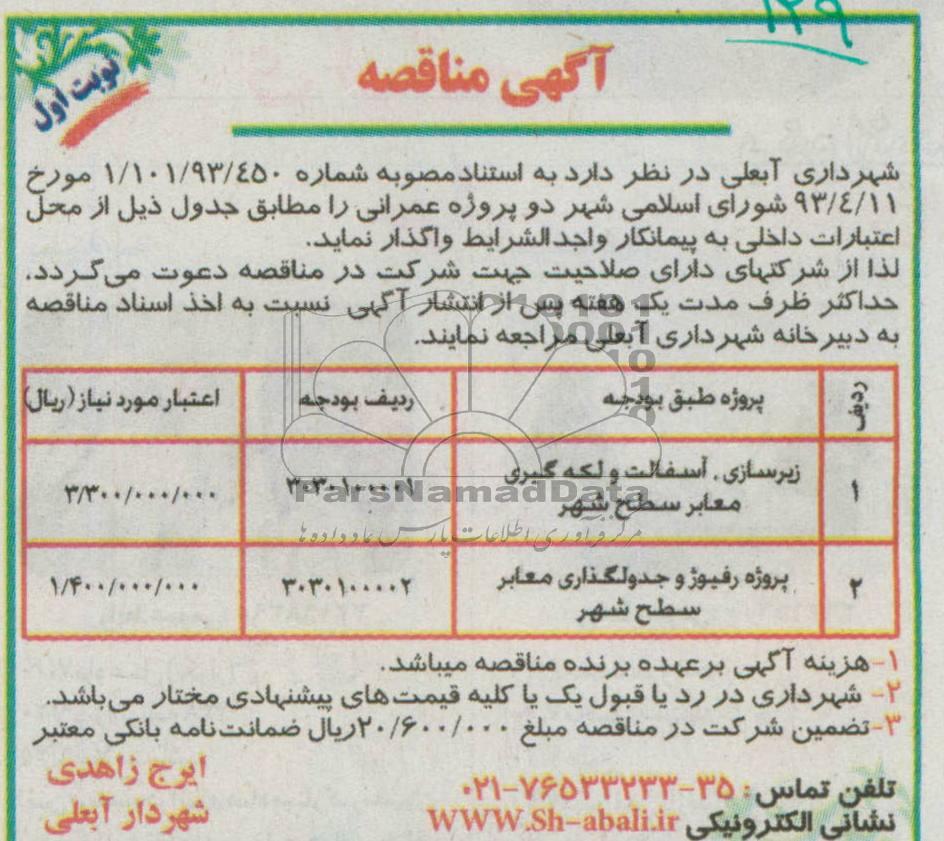 ۱۲۹
نوبت اول
آگهی مناقصه
شهرداری آبعلی در نظر دارد به استناد مصوبه شماره ۱/۱۰۱/۹۳/٤٥۰ مورخ
۹۳/٤/۱۱ شورای اسلامی شهر دو پروژه عمرانی را مطابق جدول ذیل از محل
اعتبارات داخلی به پیمانکار واجد الشرایط واگذار نماید.
لذا از شرکتهای دارای صلاحیت جهت شرکت در مناقصه دعوت می‌گردد.
حداکثر ظرف مدت یک هفته پس از انتشار آگهی نسبت به اخذ اسناد مناقصه
به دبیرخانه شهرداری آبعلی مراجعه نمایند.
ردیف پروژه طبق بودجه ردیف بودجه اعتبار مورد نیاز (ریال)
۱ زیرسازی . آسفالت و لکه گیری ۳۰۳۰۱۰۰۰۰۱ ۳/۳۰۰/۰۰۰/۰۰۰
معابر سطح شهر
۲ پروژه رفیوژ و جدولگذاری معابر ۳۰۳۰۱۰۰۰۰۲ ۱/۴۰۰/۰۰۰/۰۰۰
سطح شهر
ParsNamadData
مرکز فرآوری اطلاعات پارس نماد داده ها
۱- هزینه آگهی برعهده برنده مناقصه میباشد.
۲- شهرداری در رد یا قبول یک یا کلیه قیمت‌های پیشنهادی مختار می‌باشد.
۳- تضمین شرکت در مناقصه مبلغ ۲۰/۶۰۰/۰۰۰ریال ضمانت‌نامه بانکی معتبر
تلفن تماس: ۳۵-۷۶۵۳۳۲۳۳-۰۲۱
نشانی الکترونیکی WWW.Sh-abali.ir
ایرج زاهدی
شهردار آبعلی